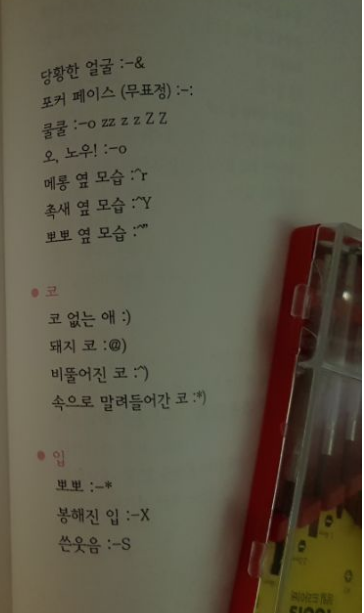 당황한 얼굴 :-&
포커 페이스 (무표정) :-:
쿨쿨 :-o zz z z Z Z
오, 노우! :-o
메롱 옆 모습 :^r
촉새 옆 모습 :^Y
뽀뽀 옆 모습 :^"
● 코
코 없는 애 :)
돼지 코 :@)
비뚤어진 코 :^)
속으로 말려들어간 코 :*)
● 입
뽀뽀 :-*
봉해진 입 :-X
쓴웃음 :-S